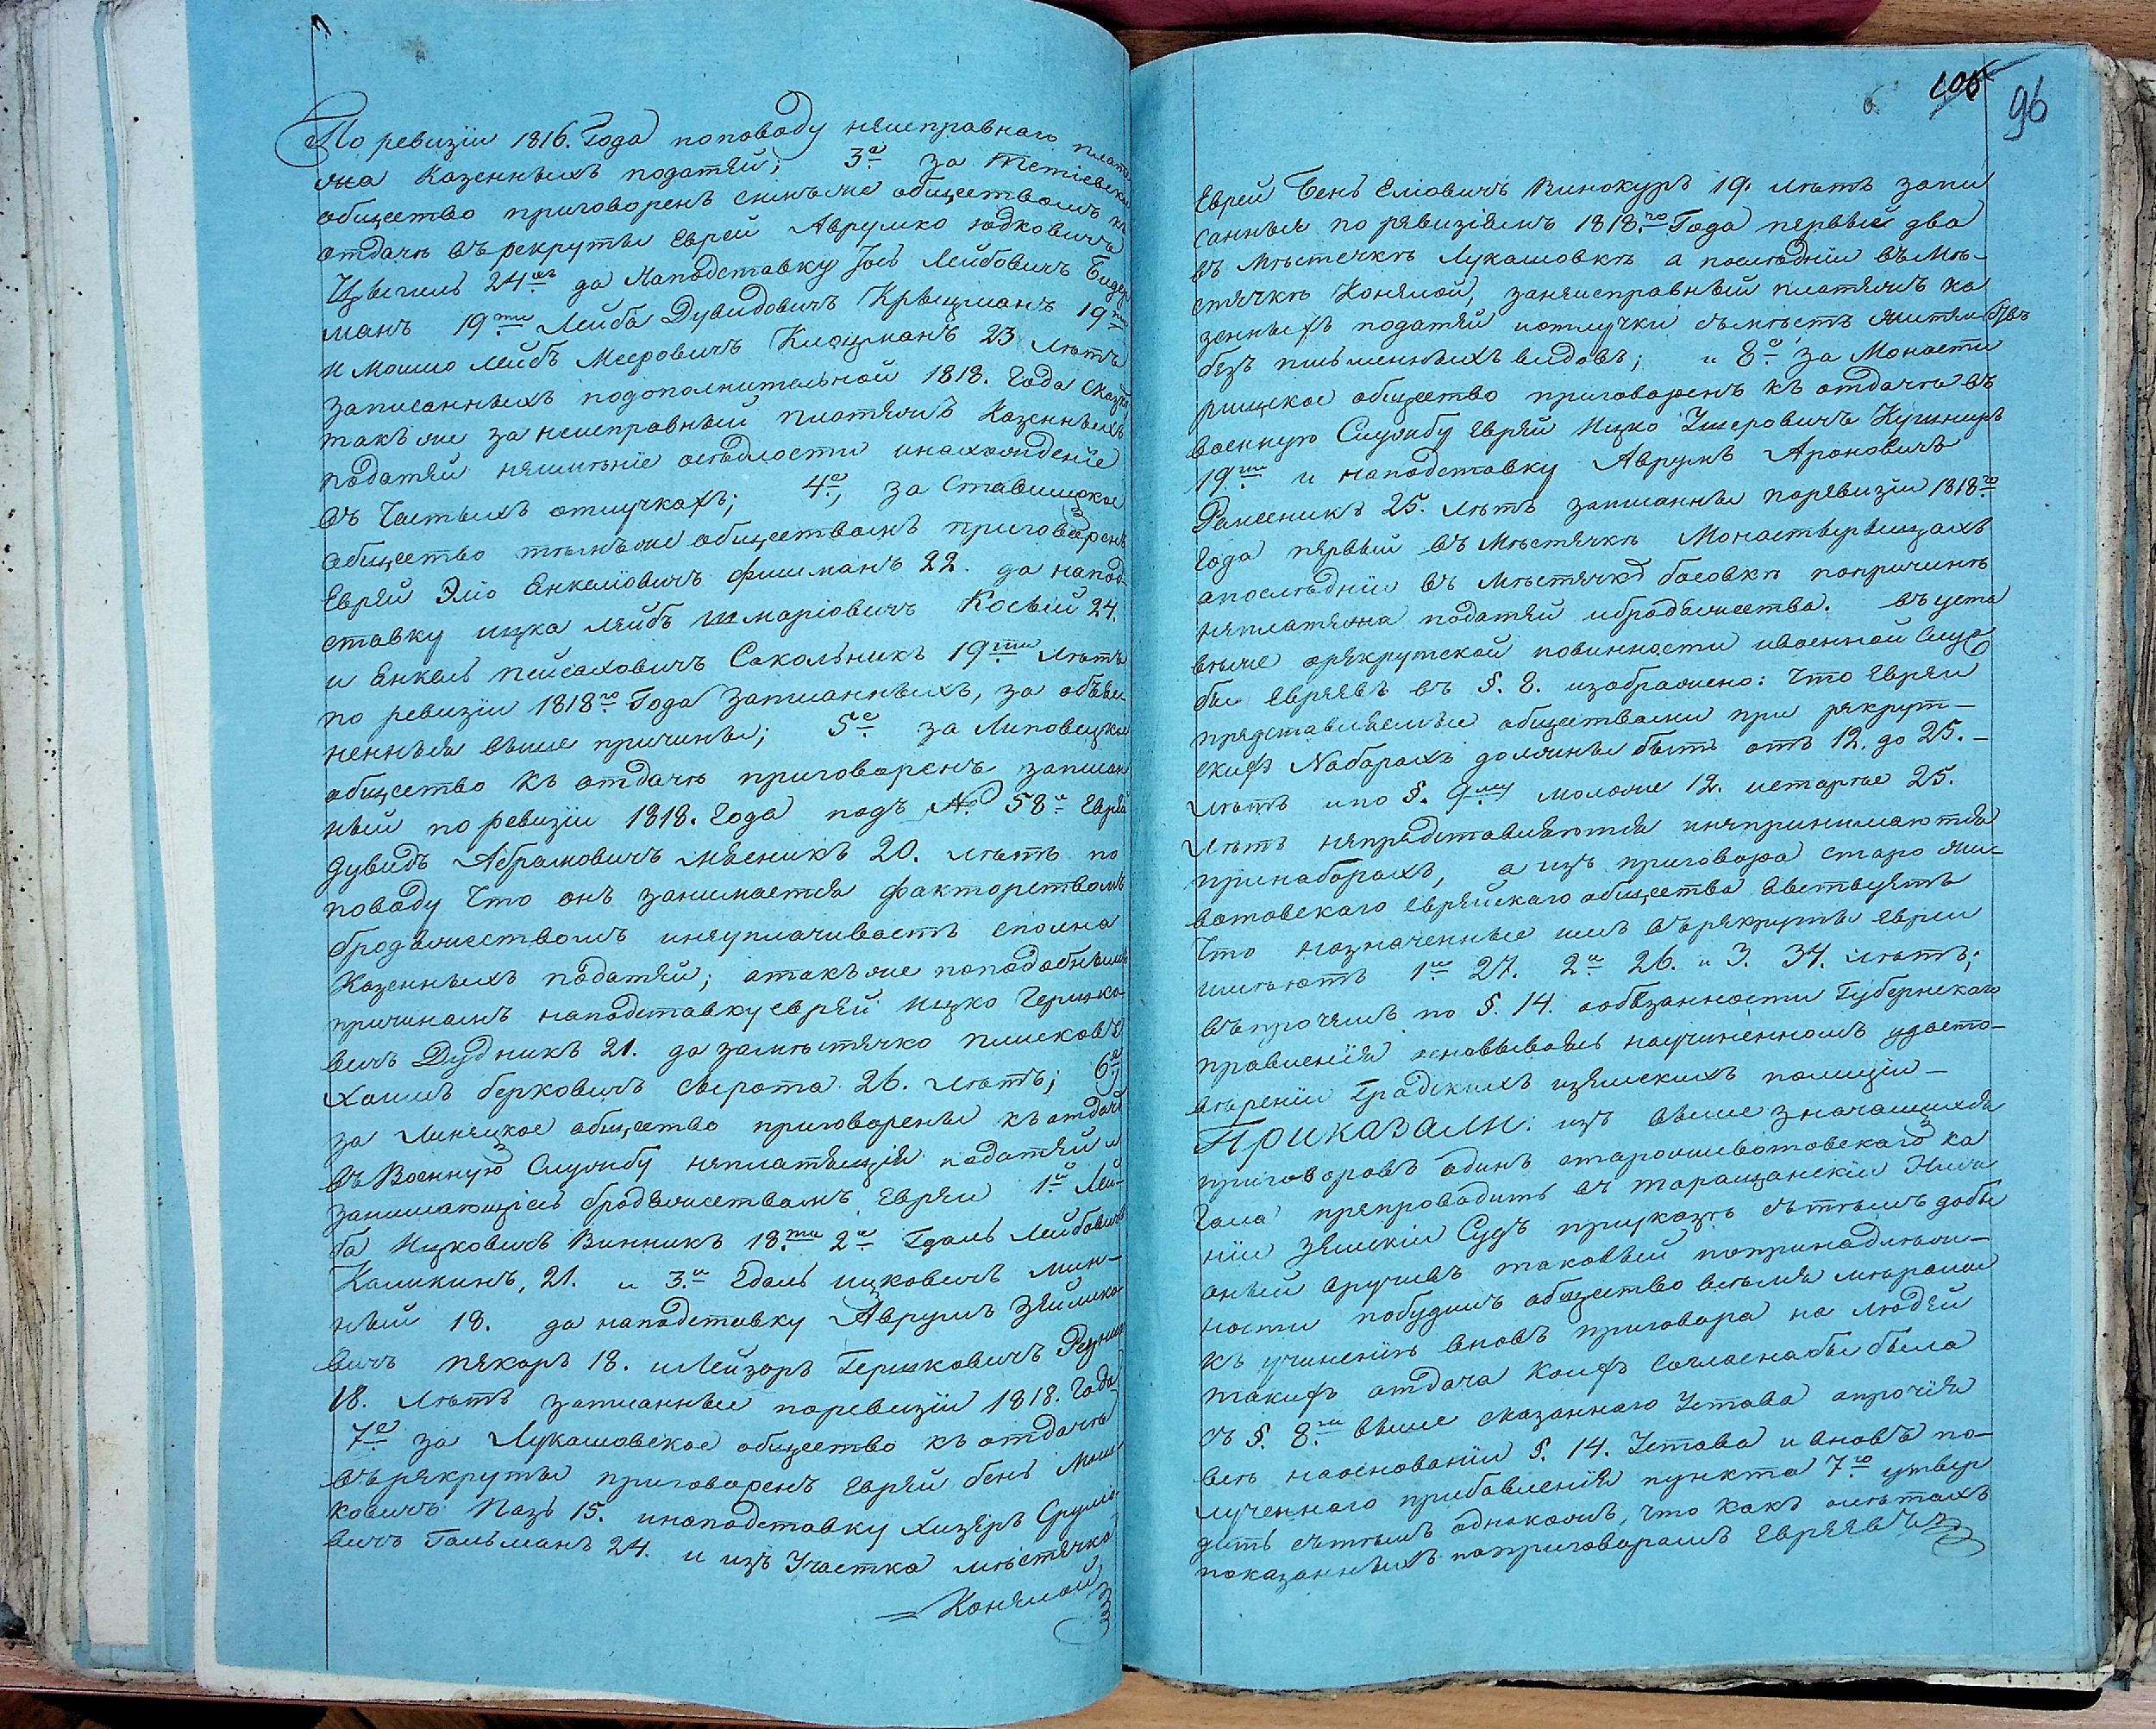 По ревизіи 1816. Года поповоду няисправнаго плате
жа Казенныхъ податяй; 3е за Тетіевское
общество приговоренъ симъ же обществомъ къ
отдачѣ въ рекруты Еврей Аврумко Юдковичъ
24хъ да Наподставку Іось Лейбовичъ Бидер
манъ 19ти Лейба Дувидовичъ Крыцманъ 19ти
и Мошко Лейбъ Мееровичъ Клоцманъ 23 лѣтъ
записанныхъ подополнительной 1818. Года сказкѣ
такъ же за неисправный платяжъ Казенныхъ
податяй няимѣніе осѣдлости инахожденіе
въ Частыхъ отлучкахъ; 4е, за Ставиское
общество тѣмъ же обществомъ приговоренъ
Еврей Эліо Енкеліовичъ Фишманъ 22. да напод
ставку ицка ляйбъ Шмаріовичъ Косый 24.
и Енкель Пейсаховичъ Сокольникъ 19ти лѣтъ
по ревизіи 1818го Года Записанныхъ, за объяс
ненныя выше причины; 5е за Липовецкое
общество къ отдачѣ приговоренъ записан
ный по ревизіи 1818. Года подъ № 58м Еврей
Дувидъ Абрамовичъ Мясникъ 20. лѣтъ по
поводу Что онъ занимается факторствомъ
бродяжествомъ иняуплачиваетъ сполна
Казенныхъ податяй; атакъ же поподобнымъ
причинамъ наподставку еврей Ицко Гершко
вичъ Дудникъ 21. да замѣстячко Плисковъ
Хаимъ Берковичъ Сирота 26. лѣтъ; 6е
за Линецкое общество приговорены къ отдачѣ
въ Военную Службу няплатящія податяй и
занимающіесь бродяжествомъ Евреи 1й Лей-
ба Ицковичъ Винникъ 18ти 2й Гдаль Лейбовичъ
Каликинъ, 21. и 3й Едаль ицковичъ Мин-
ный 18. да наподставку Аврумъ Зяйлико
вичъ пякарь 18. иЛейзоръ Гершковичъ Резник
18. лѣтъ записанные поревизіи 1818. Года
7е за Лукашовское общество къ отдачѣ
въ рякруты приговоренъ Еврей бень Мош
ковичъ Пазъ 15. инаподставку Хизяръ Срулio
вичъ Гальманъ 24. и изъ Участка мѣстячка
Конялой
105
96
Еврей Бень Еліовичъ Винокуръ 19. лѣтъ запи
санныя по рявизіямъ 1818го Года пярвые два
въ Мѣстячкѣ Лукашовкѣ а послѣдній въ Мѣ-
стячкѣ Конялой, заняисправный платяжъ ка
зенныхъ податяй иотлучки съ мѣстъ жительствъ
безъ письменныхъ видовъ; и 8е за Монасти
рищское общество приговоренъ къ отдачѣ въ
военную Службу Еврей Ицко Ушеровичъ Кушниръ
19ти и наподставку Аврумъ Ароновичъ
25. лѣтъ записанные поревизіи 1818го
Года пярвый въ Мѣстячкѣ Монастырыщахъ
апослѣдній въ Мѣстячкѣ босовкѣ попричинѣ
няплатяжа податяй ибродяжества. въ уста
вѣже орякрутской повинности ивоенной служ
бы Евряевъ въ §. 8. изображено: Что Евреи
прядставляемые обществами при рякрут-
скихъ Наборахъ должны быть отъ 12. до 25.-
лѣтъ и по §. 9му моложе 12. истаръе 25.
лѣтъ няпрядставляются иняпринимаются
принаборахъ, а изъ приговора старо жи-
вотовскаго еврейскаго общества явствуетъ
Что назначенные имъ въ рякруты Евреи
имѣютъ 1й 27. 2й 26. и 3. 34. лѣтъ;
въпрочямъ по §. 14. аобязанности Губернскаго
правленія основываясь научиненномъ удосто-
вѣреніи Градскихъ изямскихъ полиціи-
Приказали: изъ выше значащихся
приговоровъ одинъ староживотовскаго ка
гала пряпроводить въ таращанскій Ниж
ній Зямскій Судъ приуказѣ сътѣмъ дабы
оный вручивъ таковый попринадляж-
ности побудилъ общество всѣмя мѣрами
къ учиненію вновь приговора на людей
такихъ отдача коихъ согласна бы была
съ §. 8ми выше сказаннаго Устава апрочія
всѣ наоснованіи §. 14. Устава и вновь по-
лученнаго прибавленія пункта 7го утвер
дить сътѣмъ однакожъ, что какъ олѣтахъ
показанныхъ поприговорамъ Евряевъ